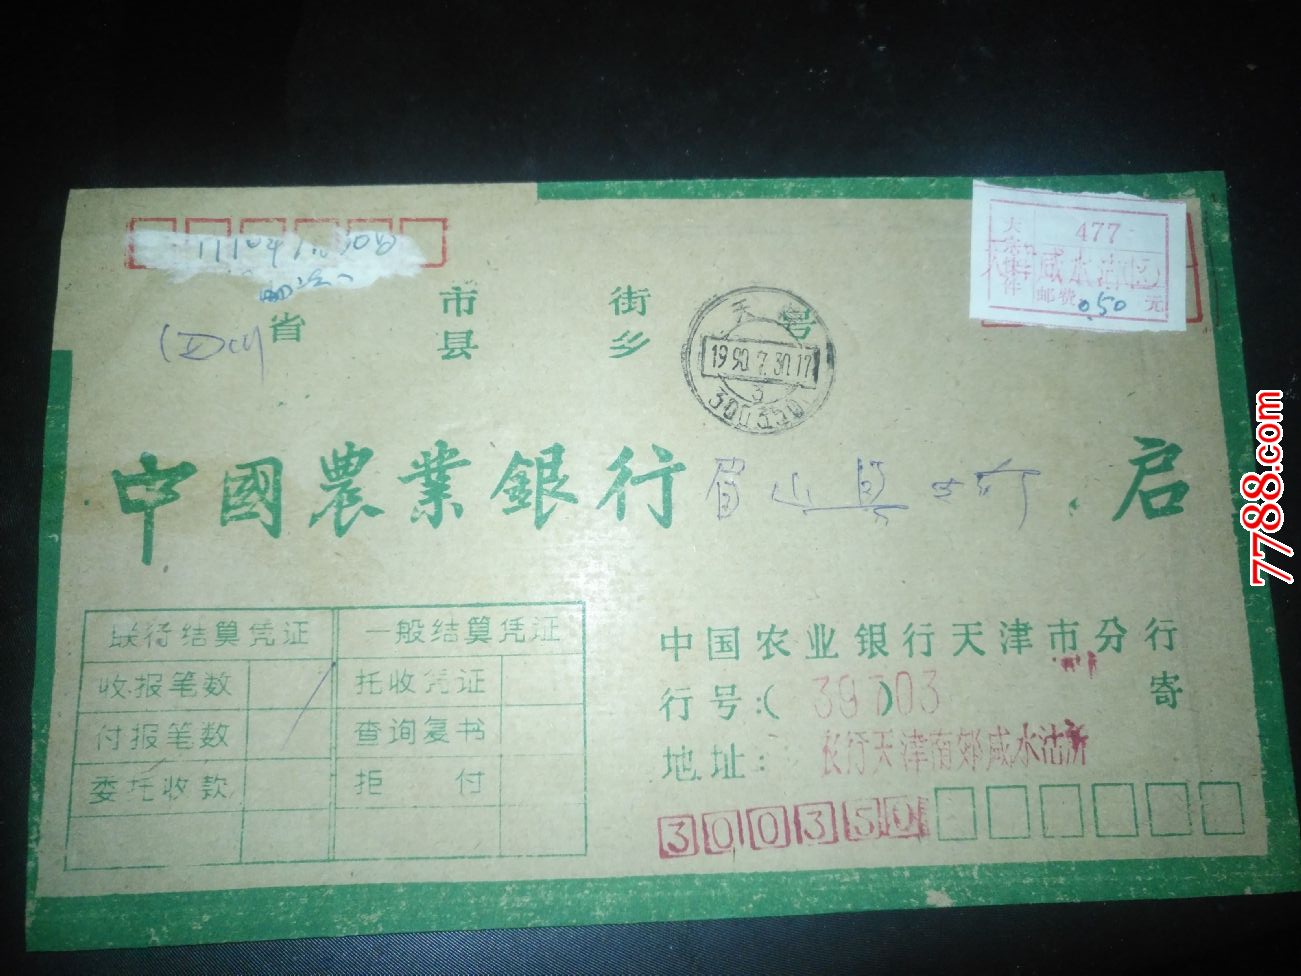 大宗
邮件
477
咸水沽(区)
邮资0.50元
省 市 街 号
县 乡
天
1990.7.30.17
3
300350
中國農業銀行眉山县支行 启
联行结算凭证 一般结算凭证
收报笔数 托收凭证
付报笔数 查询复书
委托收款 拒 付
中国农业银行天津市分行
行号:(39303) 寄
地址: 农行天津南郊咸水沽所
300350
7788.com